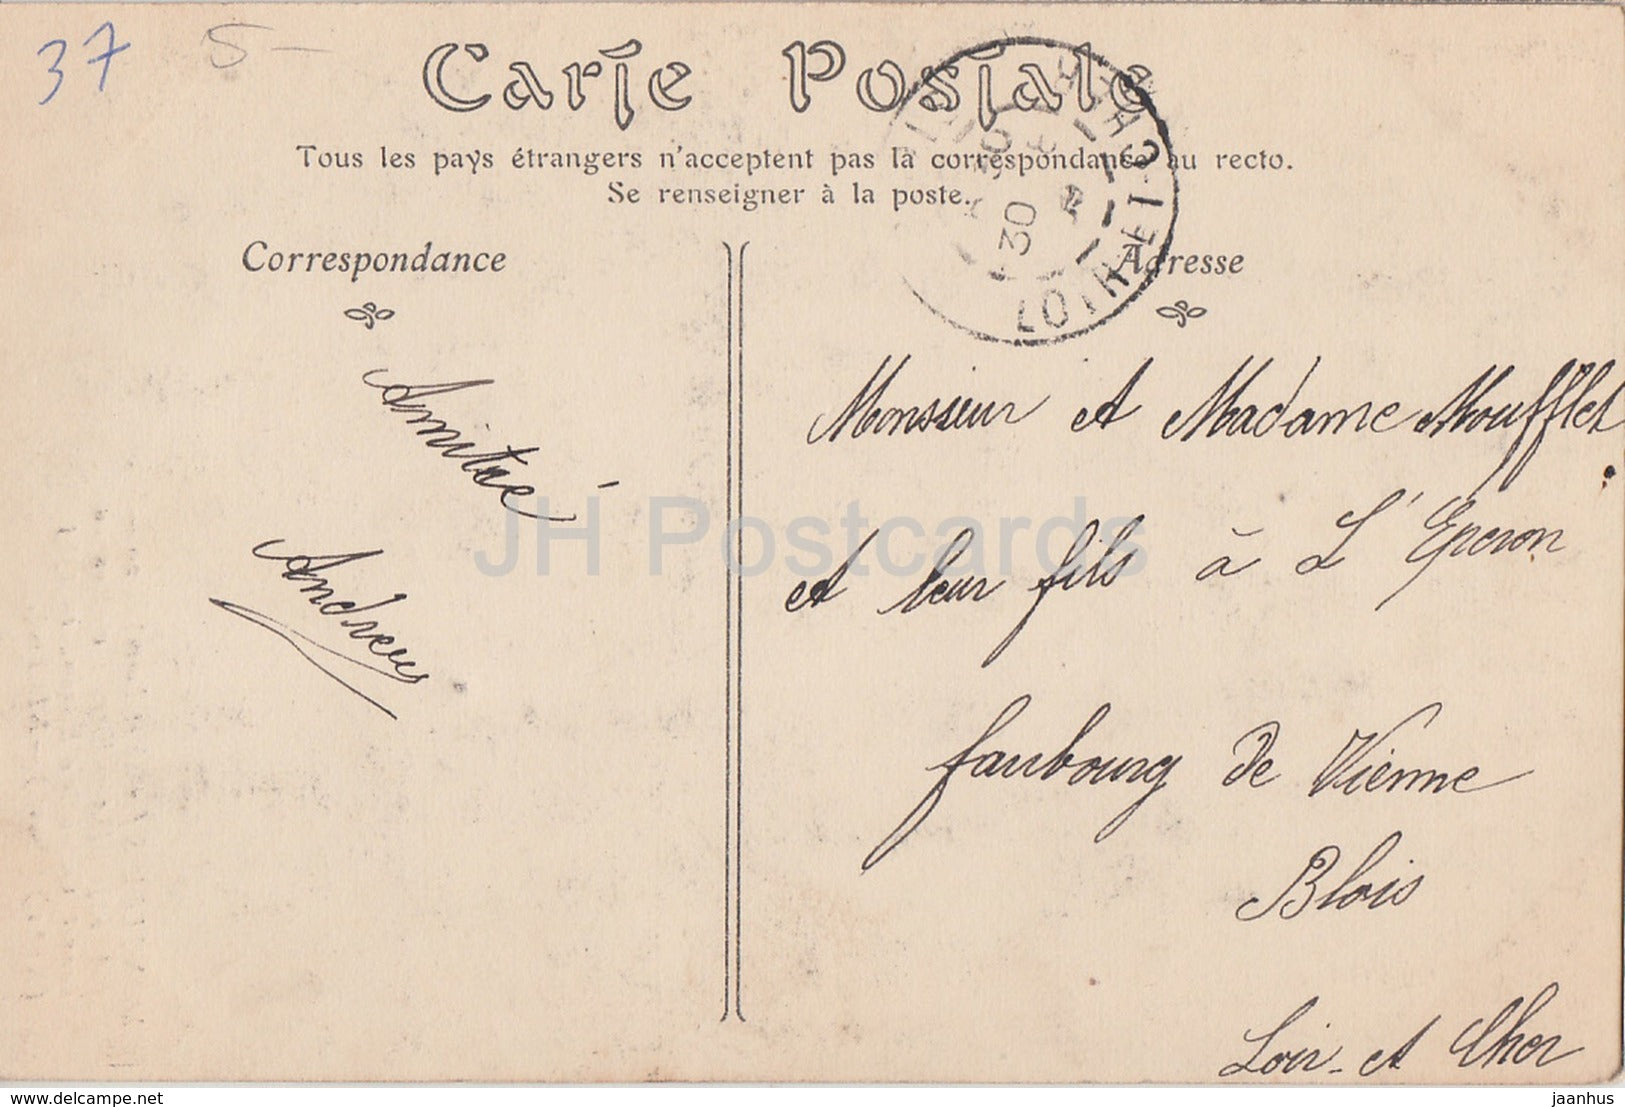 37 5-
Carte Postale
Tous les pays étrangers n'acceptent pas la correspondance au recto.
Se renseigner à la poste.
Correspondance
Amitié
Andreus
Adresse
30
LOIR-ET-CHER
Monsieur et Madame Moufflet
et leur fils à L'Eperon
faubourg de Vienne
Blois
Loir-et Cher
JH Postcards
www.delcampe.net
jaanhus